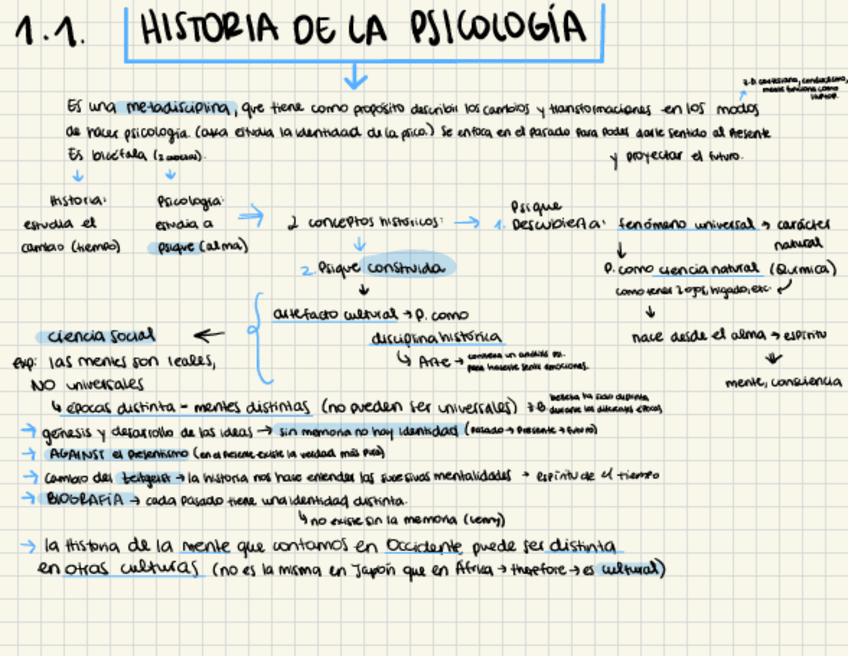 1.1. HISTORIA DE LA PSICOLOGÍA
Es una metadisciplina, que tiene como propósito describir los cambios y transformaciones en los modos
de hacer psicología (aka estudia la identidad de la psico.) Se enfoca en el pasado para poder darle sentido al presente
y proyectar el futuro.
Es bicéfala (2 ).
Historia:
estudia el
cambio (tiempo)
Psicología:
estudia a
psique (alma)
2 conceptos históricos:
1. Psique
Descubierta: fenómeno universal → carácter
natural
P. como ciencia natural (Química)
como tener 2 ojos, hígado, etc.
nace desde el alma → espíritu
mente, conciencia
2. Psique construida
artefacto cultural → p. como
disciplina histórica
↳ Arte → conlleva un análisis psi.
para hacerte sentir emociones.
ciencia social
exp: las mentes son reales,
NO universales
↳ épocas distinta - mentes distintas (no pueden ser universales)
belleza ha sido distinta
durante las diferentes épocas
→ génesis y desarrollo de las ideas → sin memoria no hay identidad (pasado → presente → futuro)
→ AGAINST el presentismo (en el presente existe la verdad más pura)
→ cambio del zeitgeist → la historia nos hace entender las sucesivas mentalidades → espíritu de el tiempo
→ BIOGRAFÍA → cada pasado tiene una identidad distinta.
↳ no existe sin la memoria (Lenny)
→ la Historia de la mente que contamos en Occidente puede ser distinta
en otras culturas (no es la misma en Japón que en África → therefore → es cultural)